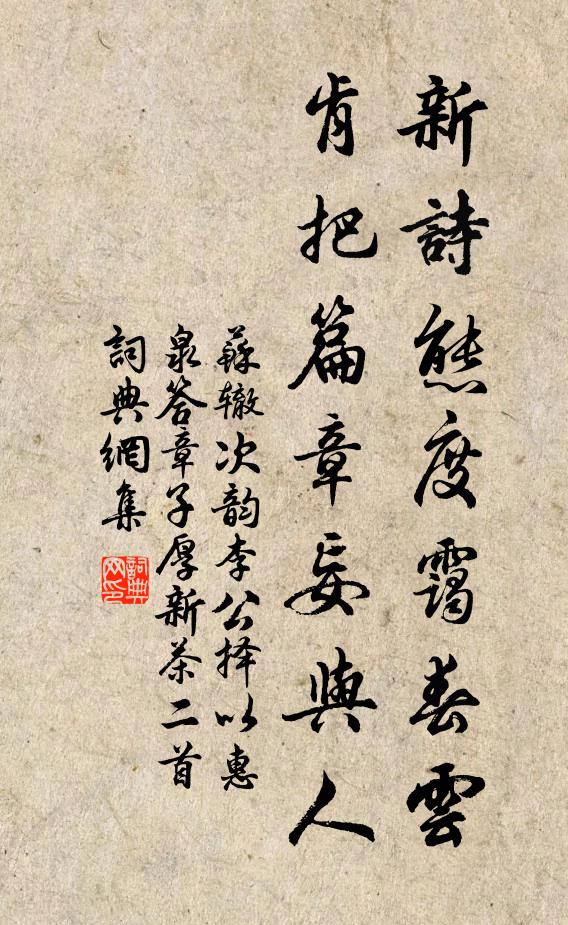 新詩態度靄春雲
肯把篇章妄與人
蘇辙次韵李公择以惠
泉答章子厚新茶二首
詞典網集
詞典
网印